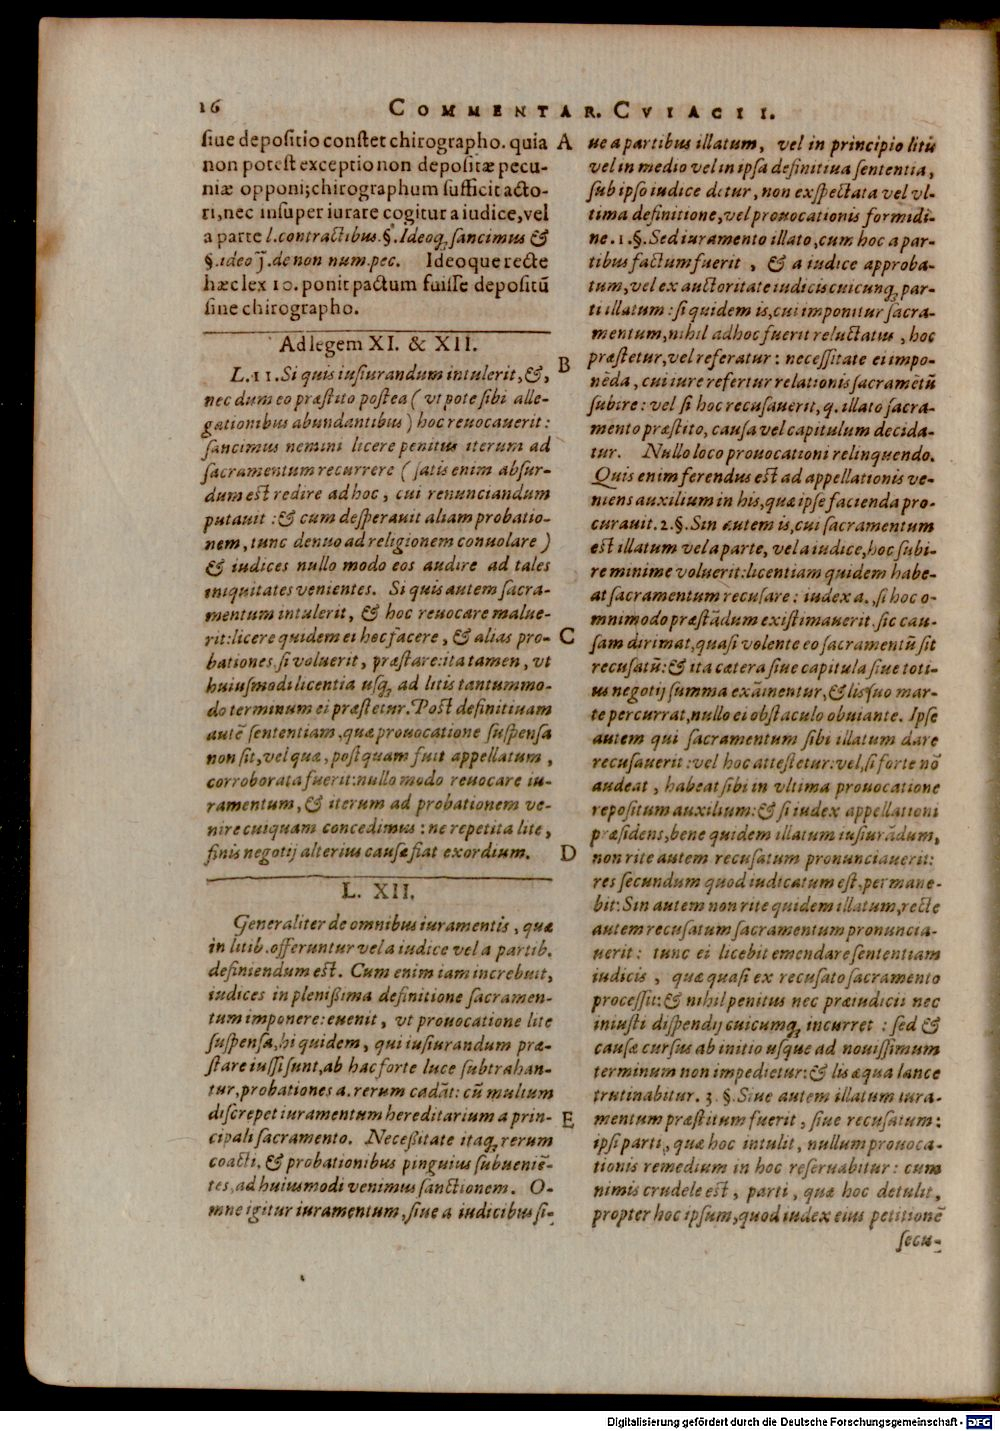 16
COMMENTAR. CVIACII I.
siue depositio constet chirographo. quia
non potest exceptio non depositæ pecu-
niæ opponi; chirographum sufficit acto-
ri, nec insuper iurare cogitur a iudice, vel
a parte l. contractibus. §. Ideoq; sancimus &
§. ideo j. de non num. pec. Ideoque recte
hæc lex 10. ponit pactum fuisse depositũ
sine chirographo.
Ad legem XI. & XII.
L. 11. Si quis iusiurandum intulerit, &,
nec dum eo præstito postea ( vt pote sibi alle-
gationibus abundantibus ) hoc reuocauerit:
sancimus nemini licere penitus iterum ad
sacramentum recurrere ( satis enim absur-
dum est redire ad hoc, cui renunciandum
putauit: & cum desperauit aliam probatio-
nem, tunc denuo ad religionem conuolare )
& iudices nullo modo eos audire ad tales
iniquitates venientes. Si quis autem sacra-
mentum intulerit, & hoc reuocare malue-
rit: licere quidem ei hoc facere, & alias pro-
bationes, si voluerit, præstare: ita tamen, vt
huiusmodi licentia usq; ad litis tantummo-
do terminum ei præstetur. Post definitiuam
autẽ sententiam, quæ prouocatione suspensa
non sit, vel quæ, postquam fuit appellatum,
corroborata fuerit: nullo modo reuocare iu-
ramentum, & iterum ad probationem ve-
nire cuiquam concedimus: ne repetita lite,
finis negotij alterius causæ fiat exordium.
L. XII.
Generaliter de omnibus iuramentis, quæ
in litib. offeruntur vel a iudice vel a partib.
definiendum est. Cum enim iam increbuit,
iudices in plenißima definitione sacramen-
tum imponere: euenit, vt prouocatione lite
suspensa, hi quidem, qui iusiurandum præ-
stare iussi sunt, ab hac forte luce subtrahan-
tur, probationes a. rerum cadãt: cũ multum
discrepet iuramentum hereditarium a prin-
cipali sacramento. Neceßitate itaq; rerum
coacti, & probationibus pinguius subueniẽ-
tes, ad huiusmodi venimus sanctionem. O-
mne igitur iuramentum, siue a iudicibus si-
A
B
C
D
E
ue a partibus illatum, vel in principio litũ
vel in medio vel in ipsa definitiua sententia,
sub ipso iudice detur, non exspectata vel vl-
tima definitione, vel prouocationis formidi-
ne. 1. §. Sed iuramento illato, cum hoc a par-
tibus factum fuerit, & a iudice approba-
tum, vel ex auctoritate iudicis cuicunq; par-
ti illatum: si quidem is, cui imponitur sacra-
mentum, nihil ad hoc fuerit reluctatus, hoc
præstetur, vel referatur: necessitate ei impo-
nẽda, cui iure refertur relationis sacramẽtũ
subire: vel si hoc recusauerit, q. illato sacra-
mento præstito, causa vel capitulum decida-
tur. Nullo loco prouocationi relinquendo.
Quis enim ferendus est ad appellationis ve-
niens auxilium in his, quæ ipse facienda pro-
curauit. 2. §. Sin autem is, cui sacramentum
est illatum vel a parte, vel a iudice, hoc subi-
re minime voluerit: licentiam quidem habe-
at sacramentum recusare: iudex a., si hoc o-
mnimodo præstãdum existimauerit, sic cau-
sam dirimat, quasi volente eo sacramentũ sit
recusatũ: & ita cætera siue capitula siue toti-
us negotij summa exãmentur, & lis suo mar-
te percurrat, nullo ei obstaculo obuiante. Ipse
autem qui sacramentum sibi illatum dare
recusauerit: vel hoc attestetur: vel, si forte nõ
audeat, habeat sibi in vltima prouocatione
repositum auxilium: & si iudex appellationi
præsidens, bene quidem illatum iusiurãdum,
non rite autem recusatum pronunciauerit:
res secundum quod iudicatum est, permane-
bit: Sin autem non rite quidem illatum, recte
autem recusatum sacramentum pronuncia-
uerit: tunc ei licebit emendare sententiam
iudicis, quæ quasi ex recusato sacramento
processit: & nihil penitus nec præiudicii nec
iniusti dispendij cuicumq; incurret: sed &
causæ cursus ab initio usque ad nouissimum
terminum non impedietur: & lis æqua lance
trutinabitur. 3. §. Siue autem illatum iura-
mentum præstitum fuerit, siue recusatum:
ipsi parti, quæ hoc intulit, nullum prouoca-
tionis remedium in hoc reseruabitur: cum
nimis crudele est, parti, quæ hoc detulit,
propter hoc ipsum, quod iudex eius petitionẽ
secu-
Digitalisierung gefördert durch die Deutsche Forschungsgemeinschaft - DFG